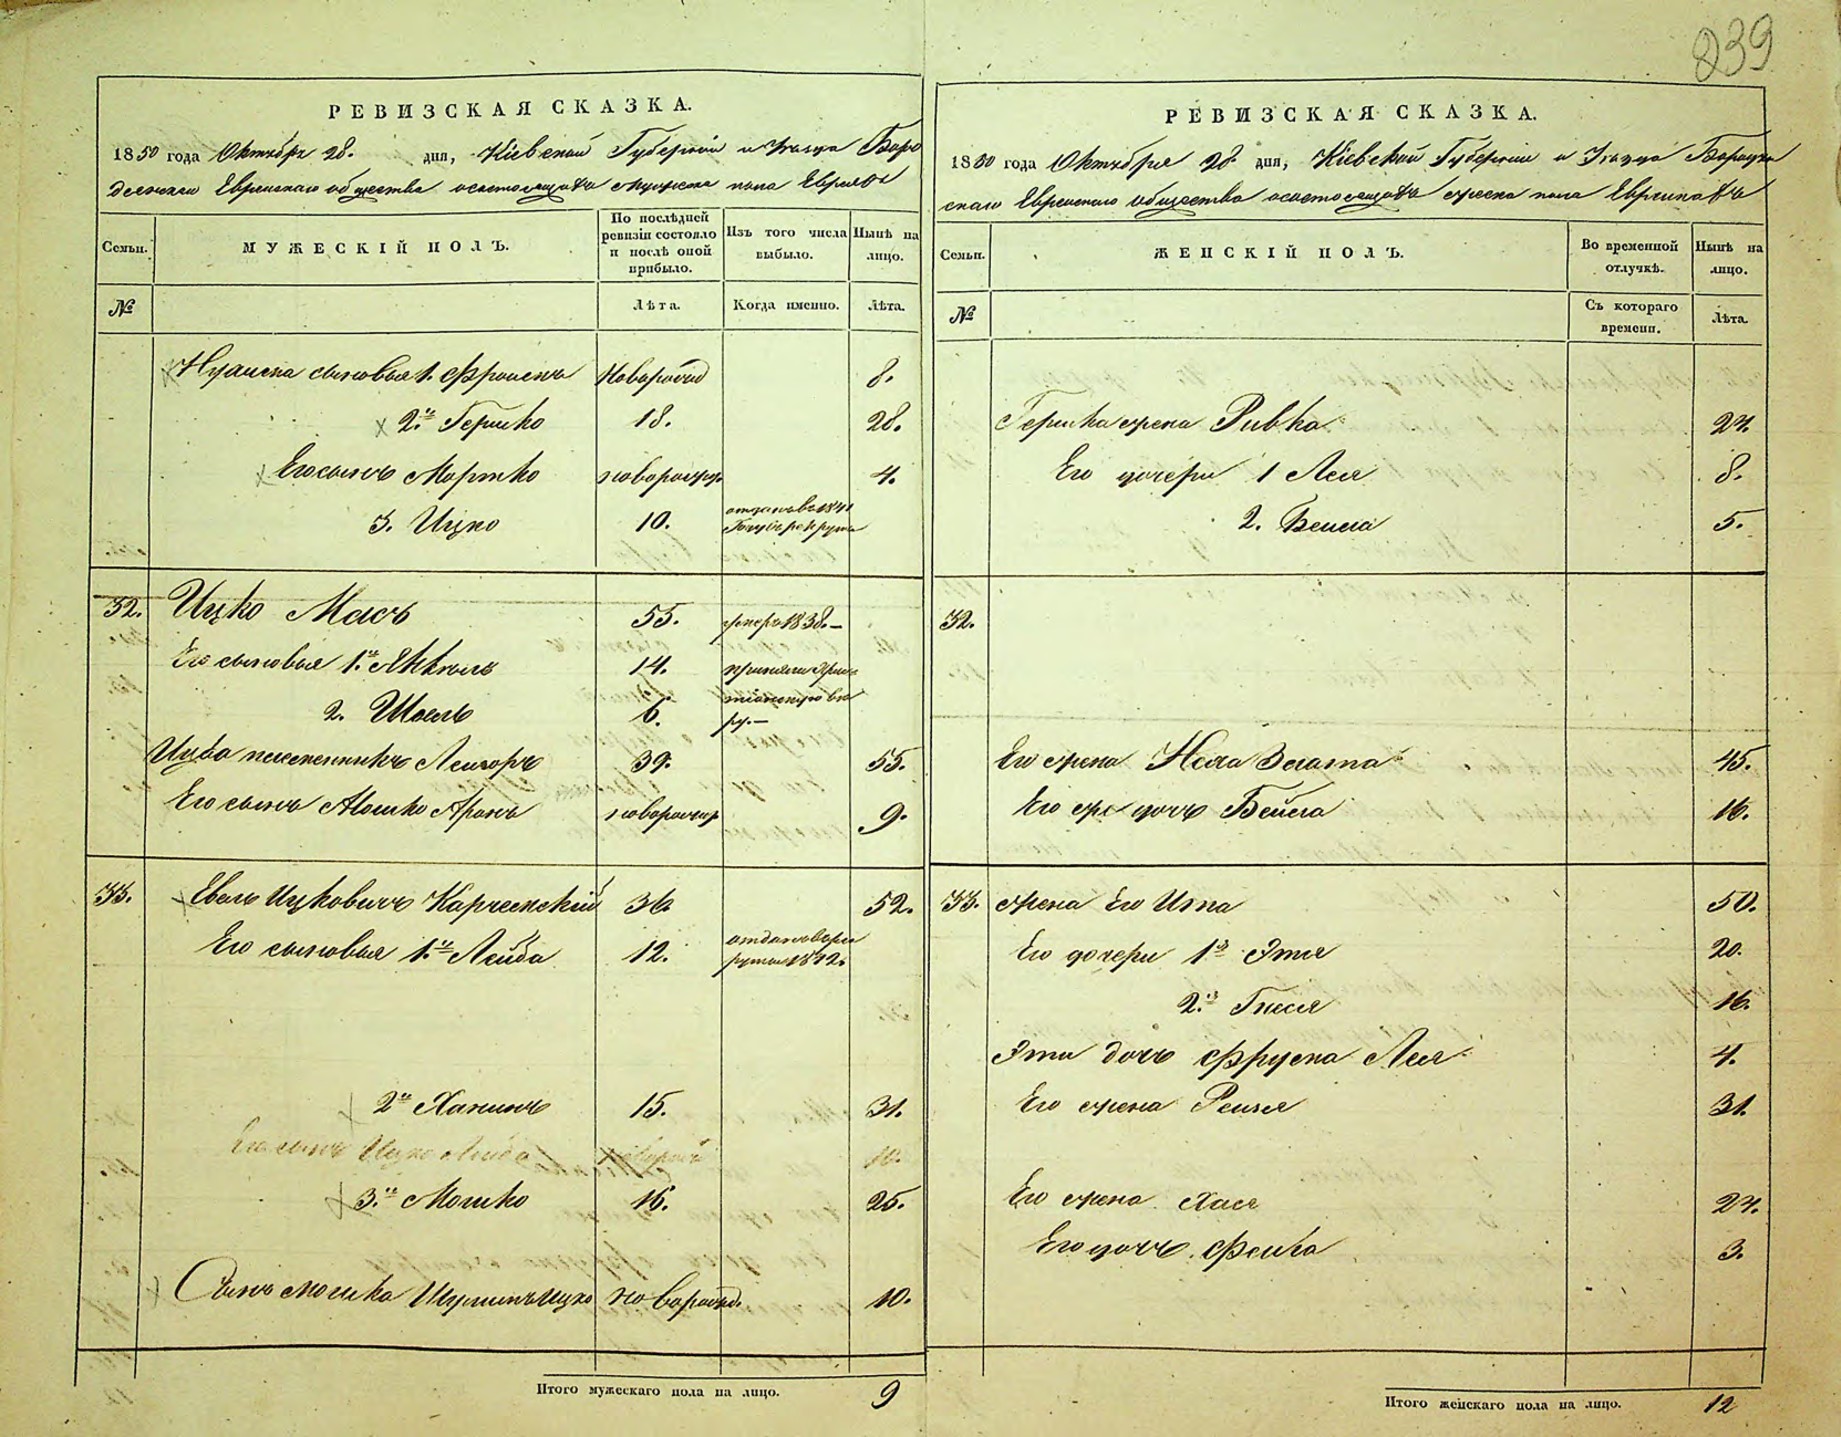 839
РЕВИЗСКАЯ СКАЗКА.
1850 года Октября 28. дня, Кіевской Губерніи и Уѣзда Боро
дянскаго Еврейскаго общества о состоящихъ мужеска пола Евреяхъ
Семьи.
МУЖЕСКІЙ ПОЛЪ.
По послѣдней ревизіи состояло и послѣ оной прибыло.
Изъ того числа выбыло.
Нынѣ на лицо.
№
Лѣта.
Когда именно.
Лѣта.
сыновья 1. Фроимъ новорожд 8.
2й Гершко 18. 28.
Его сынъ Мортко новорожд. 4.
3. Ицко 10. отданъ въ 1841 Году въ рекруты
32. Ицко Масъ 55. умеръ 1838.
Его сыновья 1й Янкель 14. приняли Хрис
2. Шоель 6. тіанскую вѣ
ру.
Ицка племенникъ Лейзоръ 39. 55.
Его сынъ Мошко Аронъ новорожд 9.
33. Евель Ицковичъ Карчемскій 36 52.
Его сыновья 1й Лейба 12. отданъ въ рек
руты 1842.
2й Ханинъ 15. 31.
Его сынъ Ицко Лейба 10.
3й Мошко 16. 25.
Сынъ Мошка Ицко новорожд. 10.
Итого мужескаго пола на лицо. 9
РЕВИЗСКАЯ СКАЗКА.
1850 года Октября 28 дня, Кіевской Губерніи и Уѣзда Бородян
скаго Еврейскаго общества о состоящихъ женска пола Еврейкахъ
Семьи.
ЖЕНСКІЙ ПОЛЪ.
Во временной отлучкѣ.
Нынѣ на лицо.
№
Съ котораго времени.
Лѣта.
Гершка жена Ривка 27.
Его дочери 1 Лея 8.
2. Бейла 5.
32.
Его жена Неха Злата 45.
Его дочь Бейла 16.
33. жена Его Ита 50.
Его дочери 1я Этя 20.
2я Гнеся 16.
Эти дочь Фрума Лея 4.
Его жена Рейзя 31.
Его жена Хася 27.
Его дочь Фейга 3.
Итого женскаго пола на лицо. 12